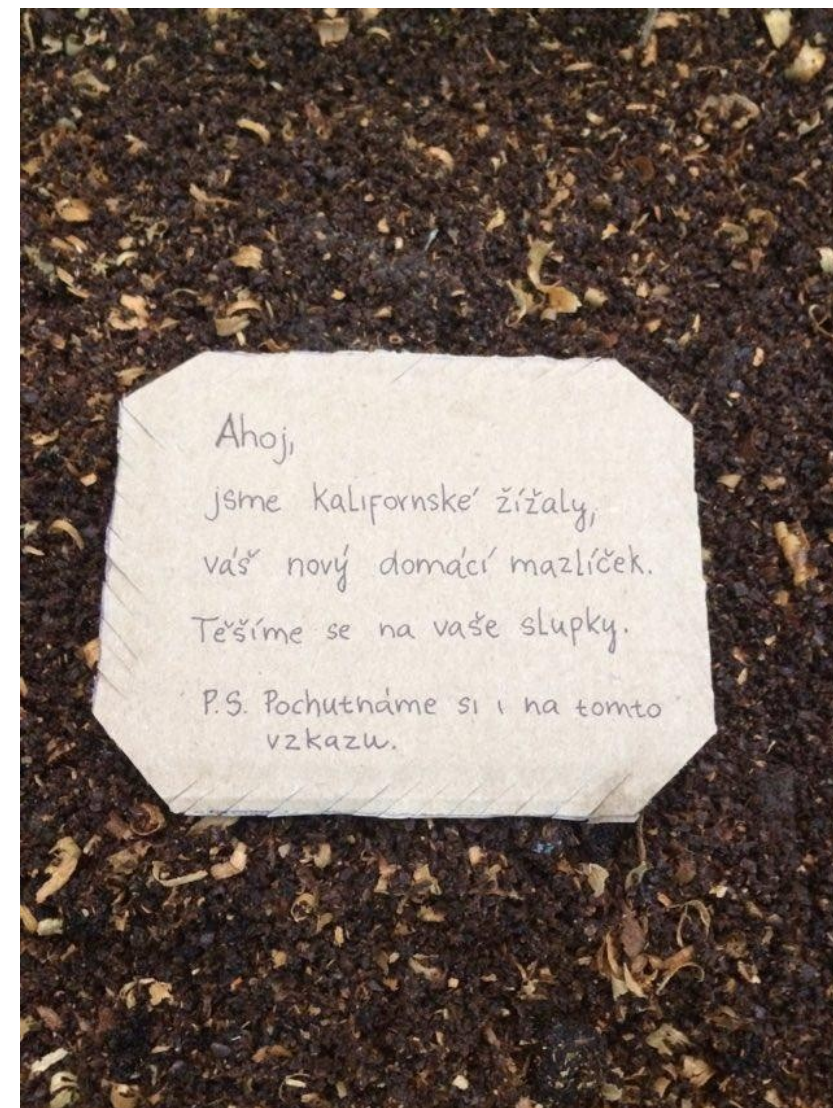 Ahoj,
jsme kalifornské žížaly,
váš nový domácí mazlíček.
Těšíme se na vaše slupky.
P.S. Pochutnáme si i na tomto
vzkazu.